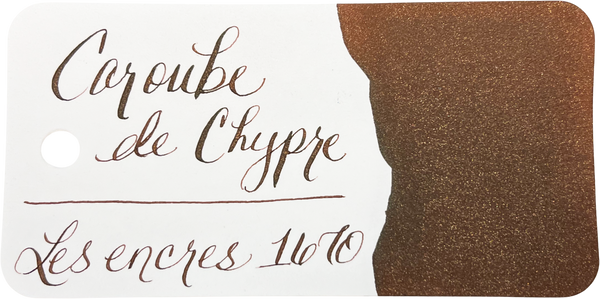 Caroube
de Chypre
Les encres 1670